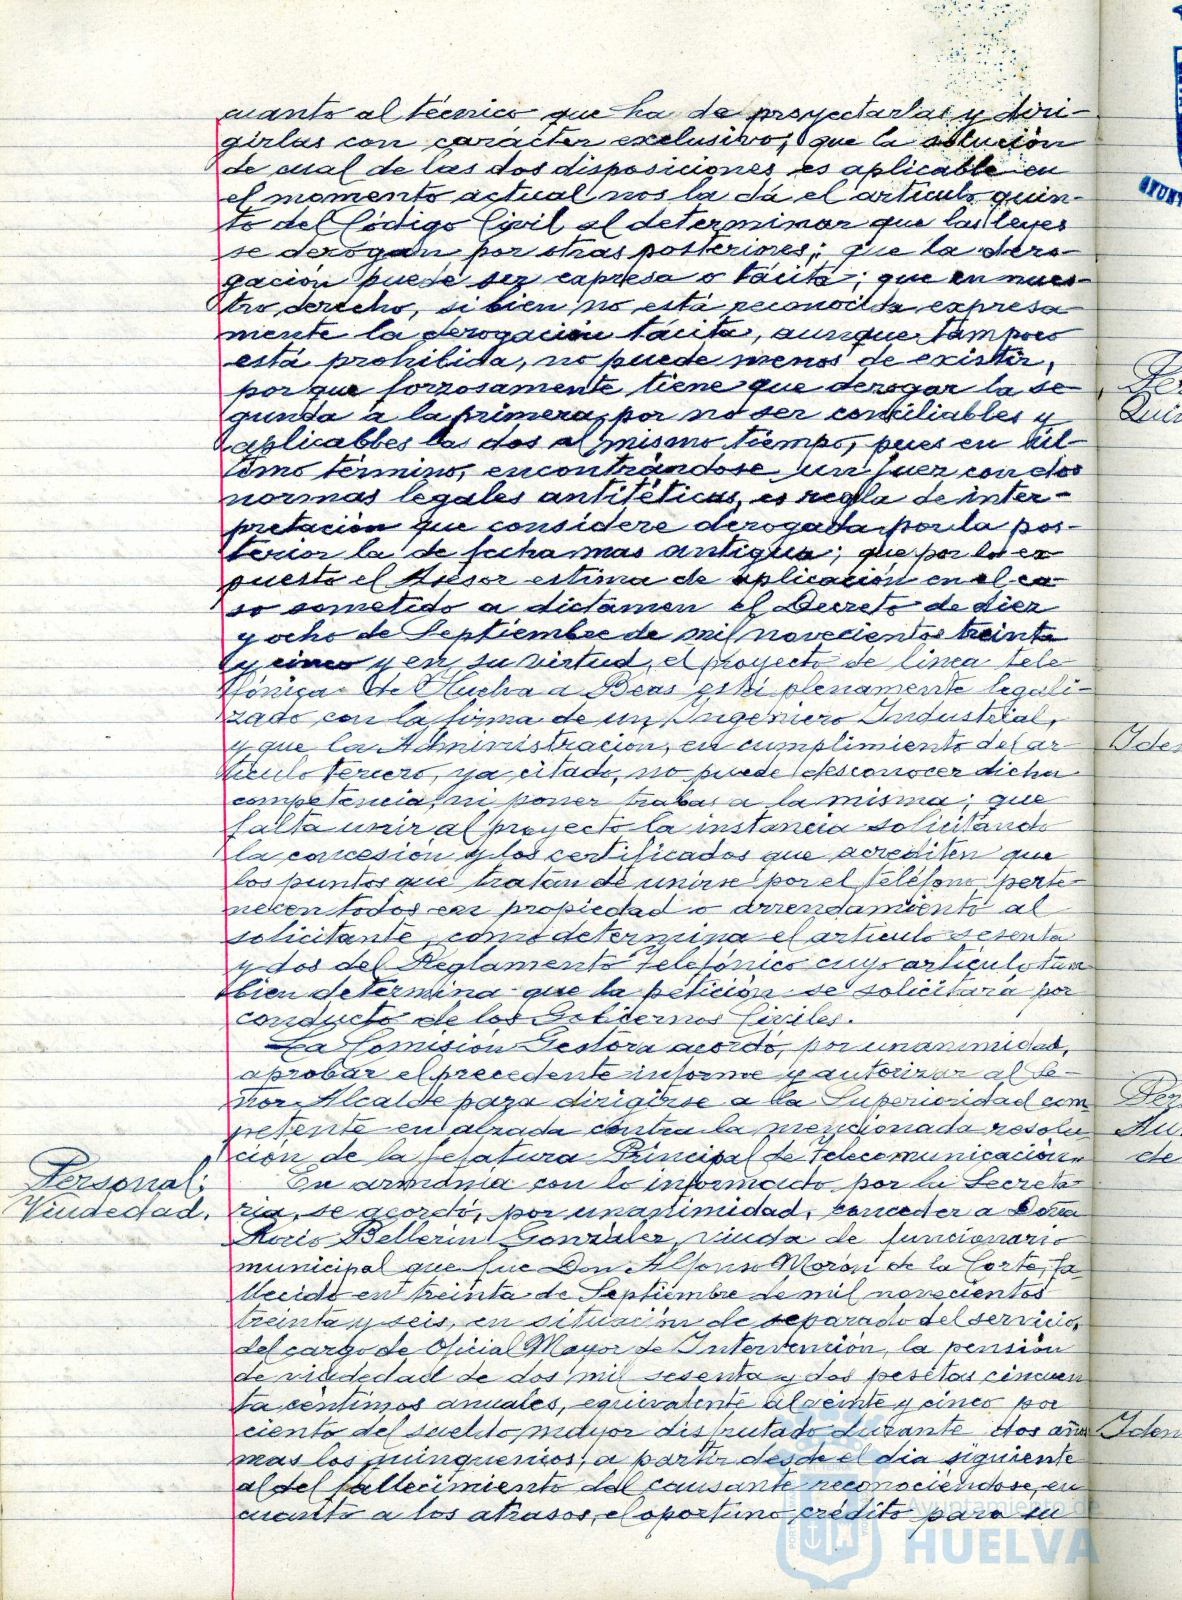 cuanto al técnico que ha de proyectarlas y diri-
girlas con carácter exclusivo; que la solución
de cual de las dos disposiciones es aplicable en
el momento actual nos la dá el artículo quin-
to del Código Civil al determinar que las leyes
se derogan por otras posteriores; que la dero-
gación puede ser expresa o tácita; que en nues-
tro derecho, si bien no está reconocida expresa
mente la derogación tácita, aunque tampoco
está prohibida, no puede menos de existir,
porque forzosamente tiene que derogar la se
gunda a la primera, por no ser conciliables y
aplicables las dos al mismo tiempo, pues en úl-
timo término, encontrándose un juez con dos
normas legales antitéticas, es regla de inter-
pretación que considere derogada por la pos-
terior la de fecha mas antigua; que por lo ex
puesto el Asesor estima de aplicación en el ca-
so sometido a dictamen el Decreto de diez
y ocho de Septiembre de mil novecientos treinta
y cinco y en su virtud, el proyecto de línea tele
fónica de Hucha a Beas está plenamente legali-
zado con la firma de un Ingeniero Industrial,
y que la Administración, en cumplimiento del ar
tículo tercero, ya citado, no puede desconocer dicha
competencia, ni poner trabas a la misma; que
falta unir al proyecto la instancia solicitando
la concesión y los certificados que acrediten que
los puntos que tratan de unirse por el teléfono perte-
necen todos en propiedad o arrendamiento al
solicitante, como determina el artículo sesenta
y dos del Reglamento Telefónico cuyo artículo tam
bien determina que la petición se solicitará por
conducto de los Gobiernos Civiles.
La Comisión Gestora acordó, por unanimidad,
aprobar el precedente informe y autorizar al Se-
ñor Alcalde para dirigirse a la Superioridad com
petente en alzada contra la mencionada resolu
ción de la Jefatura Principal de Telecomunicación.
Personal;
Viudedad.
En armonía con lo informado por la Secreta-
ría, se acordó, por unanimidad, conceder a Doña
Rocio Bellerin Gonzalez, viuda de funcionario
municipal que fue Don Alfonso Morón de la Corte, fa
llecido en treinta de Septiembre de mil novecientos
treinta y seis, en situación de separado del servicio,
del cargo de Oficial Mayor de Intervención, la pensión
de viudedad de dos mil sesenta y dos pesetas cincuen
ta céntimos anuales, equivalente al veinte y cinco por
ciento del sueldo mayor disfrutado durante dos años
mas los quinquenios, a partir desde el dia siguiente
al del fallecimiento del causante reconociéndose, en
cuanto a los atrasos, el oportuno crédito para su
Ayuntamiento de
HUELVA